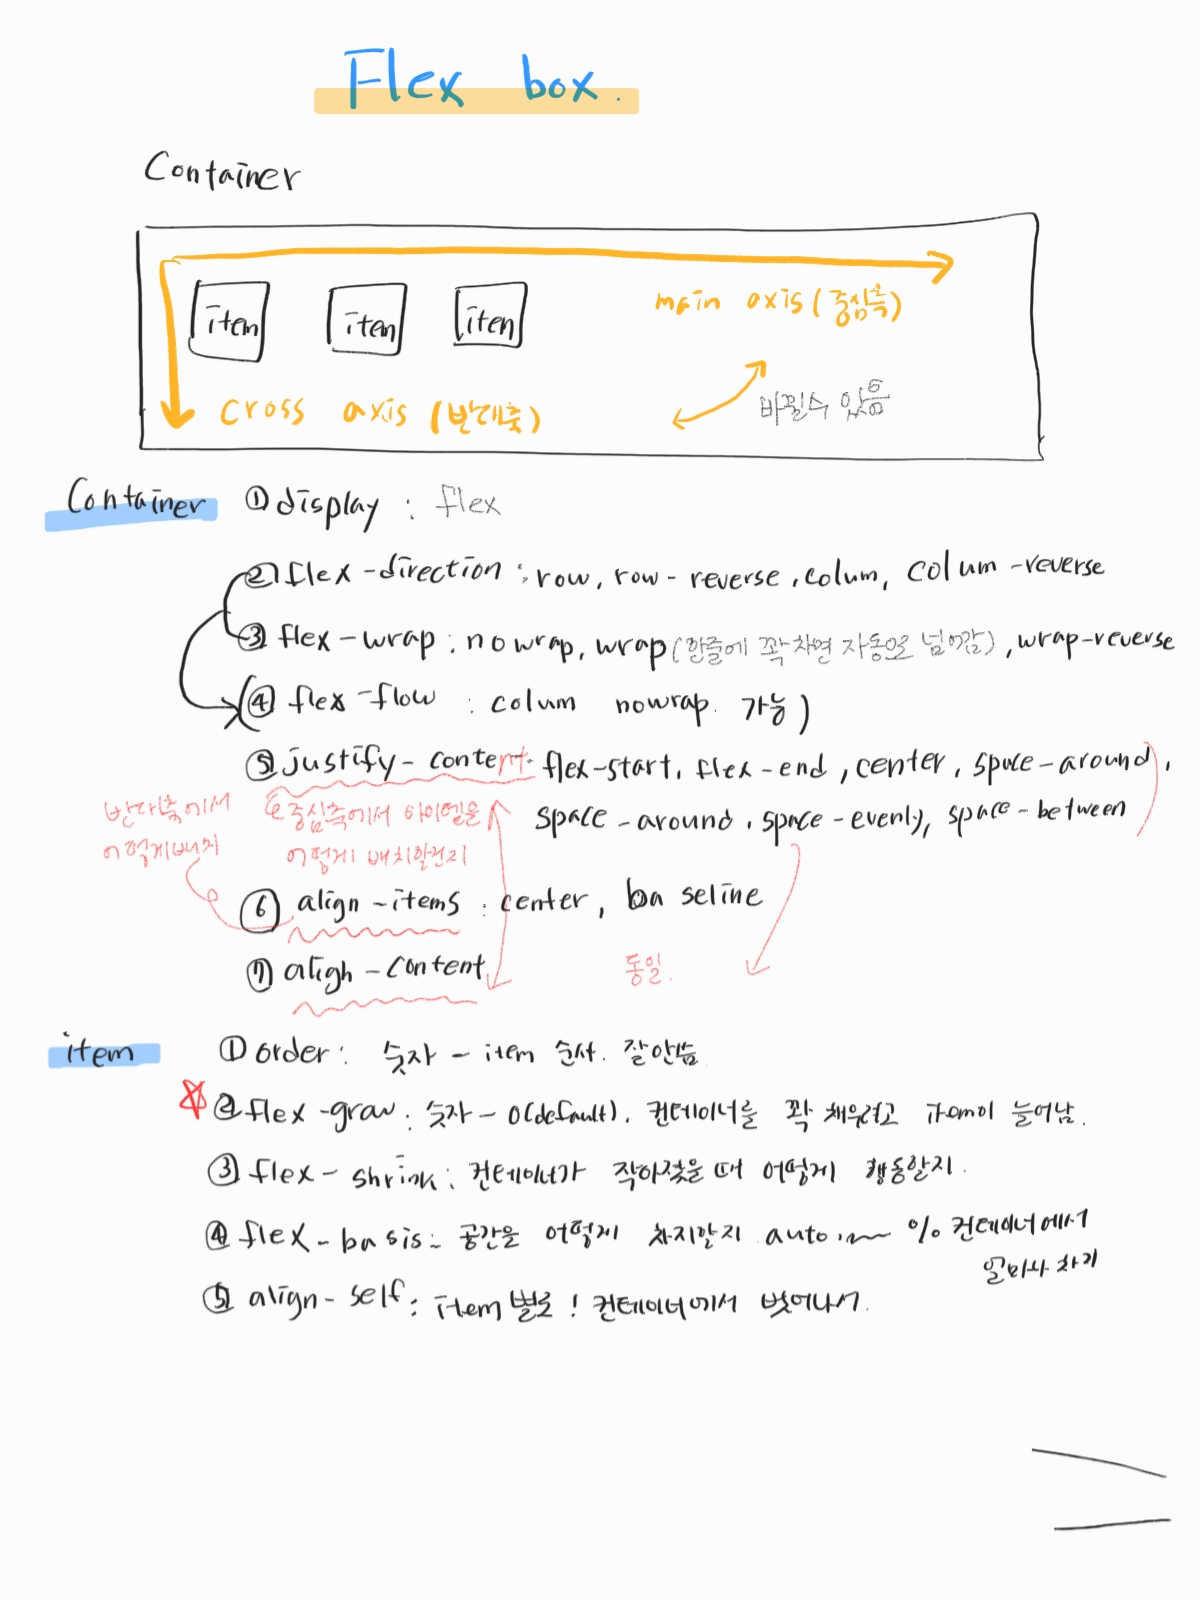 Flex box.
Container
item item item
main axis (중심축)
cross axis (반대축)
바뀔수 있음
Container ① display : flex
② flex-direction : row, row-reverse, colum, colum-reverse
③ flex-wrap : nowrap, wrap (한줄에 꽉차면 자동으로 넘어감), wrap-reverse
(④ flex-flow : colum nowrap. 가능)
⑤ justify-content. flex-start, flex-end, center, space-around,
space-around, space-evenly, space-between
중심축에서 아이템을
어떻게 배치할건지
반대축에서
어떻게배치
⑥ align-items : center, baseline
⑦ align-content
동일.
item ① order : 숫자 - item 순서. 잘안씀
② flex-grow : 숫자 - 0(default). 컨테이너를 꽉 채우려고 늘어남.
③ flex-shrink : 컨테이너가 작아졌을 때 어떻게 행동할지.
④ flex-basis : 공간을 어떻게 차지할지 auto, % 컨테이너에서
얼마나 차지
⑤ align-self : item 별로! 컨테이너에서 벗어나서.